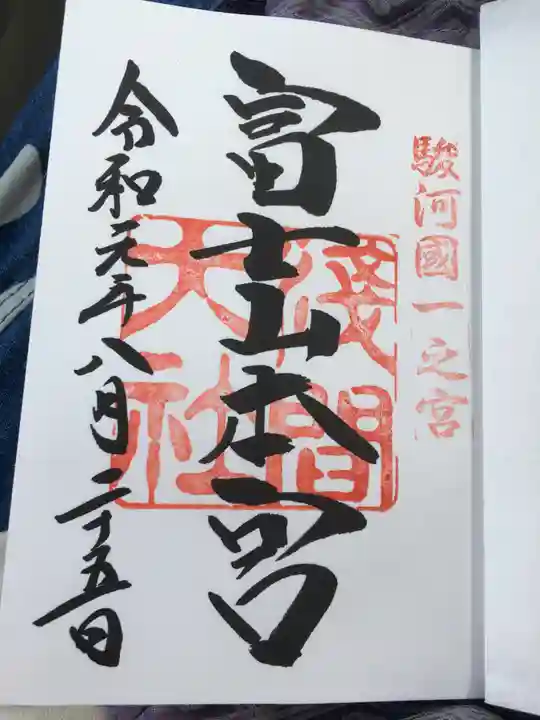 駿河國一之宮
富士山本宮
淺間大社
令和元年八月二十五日